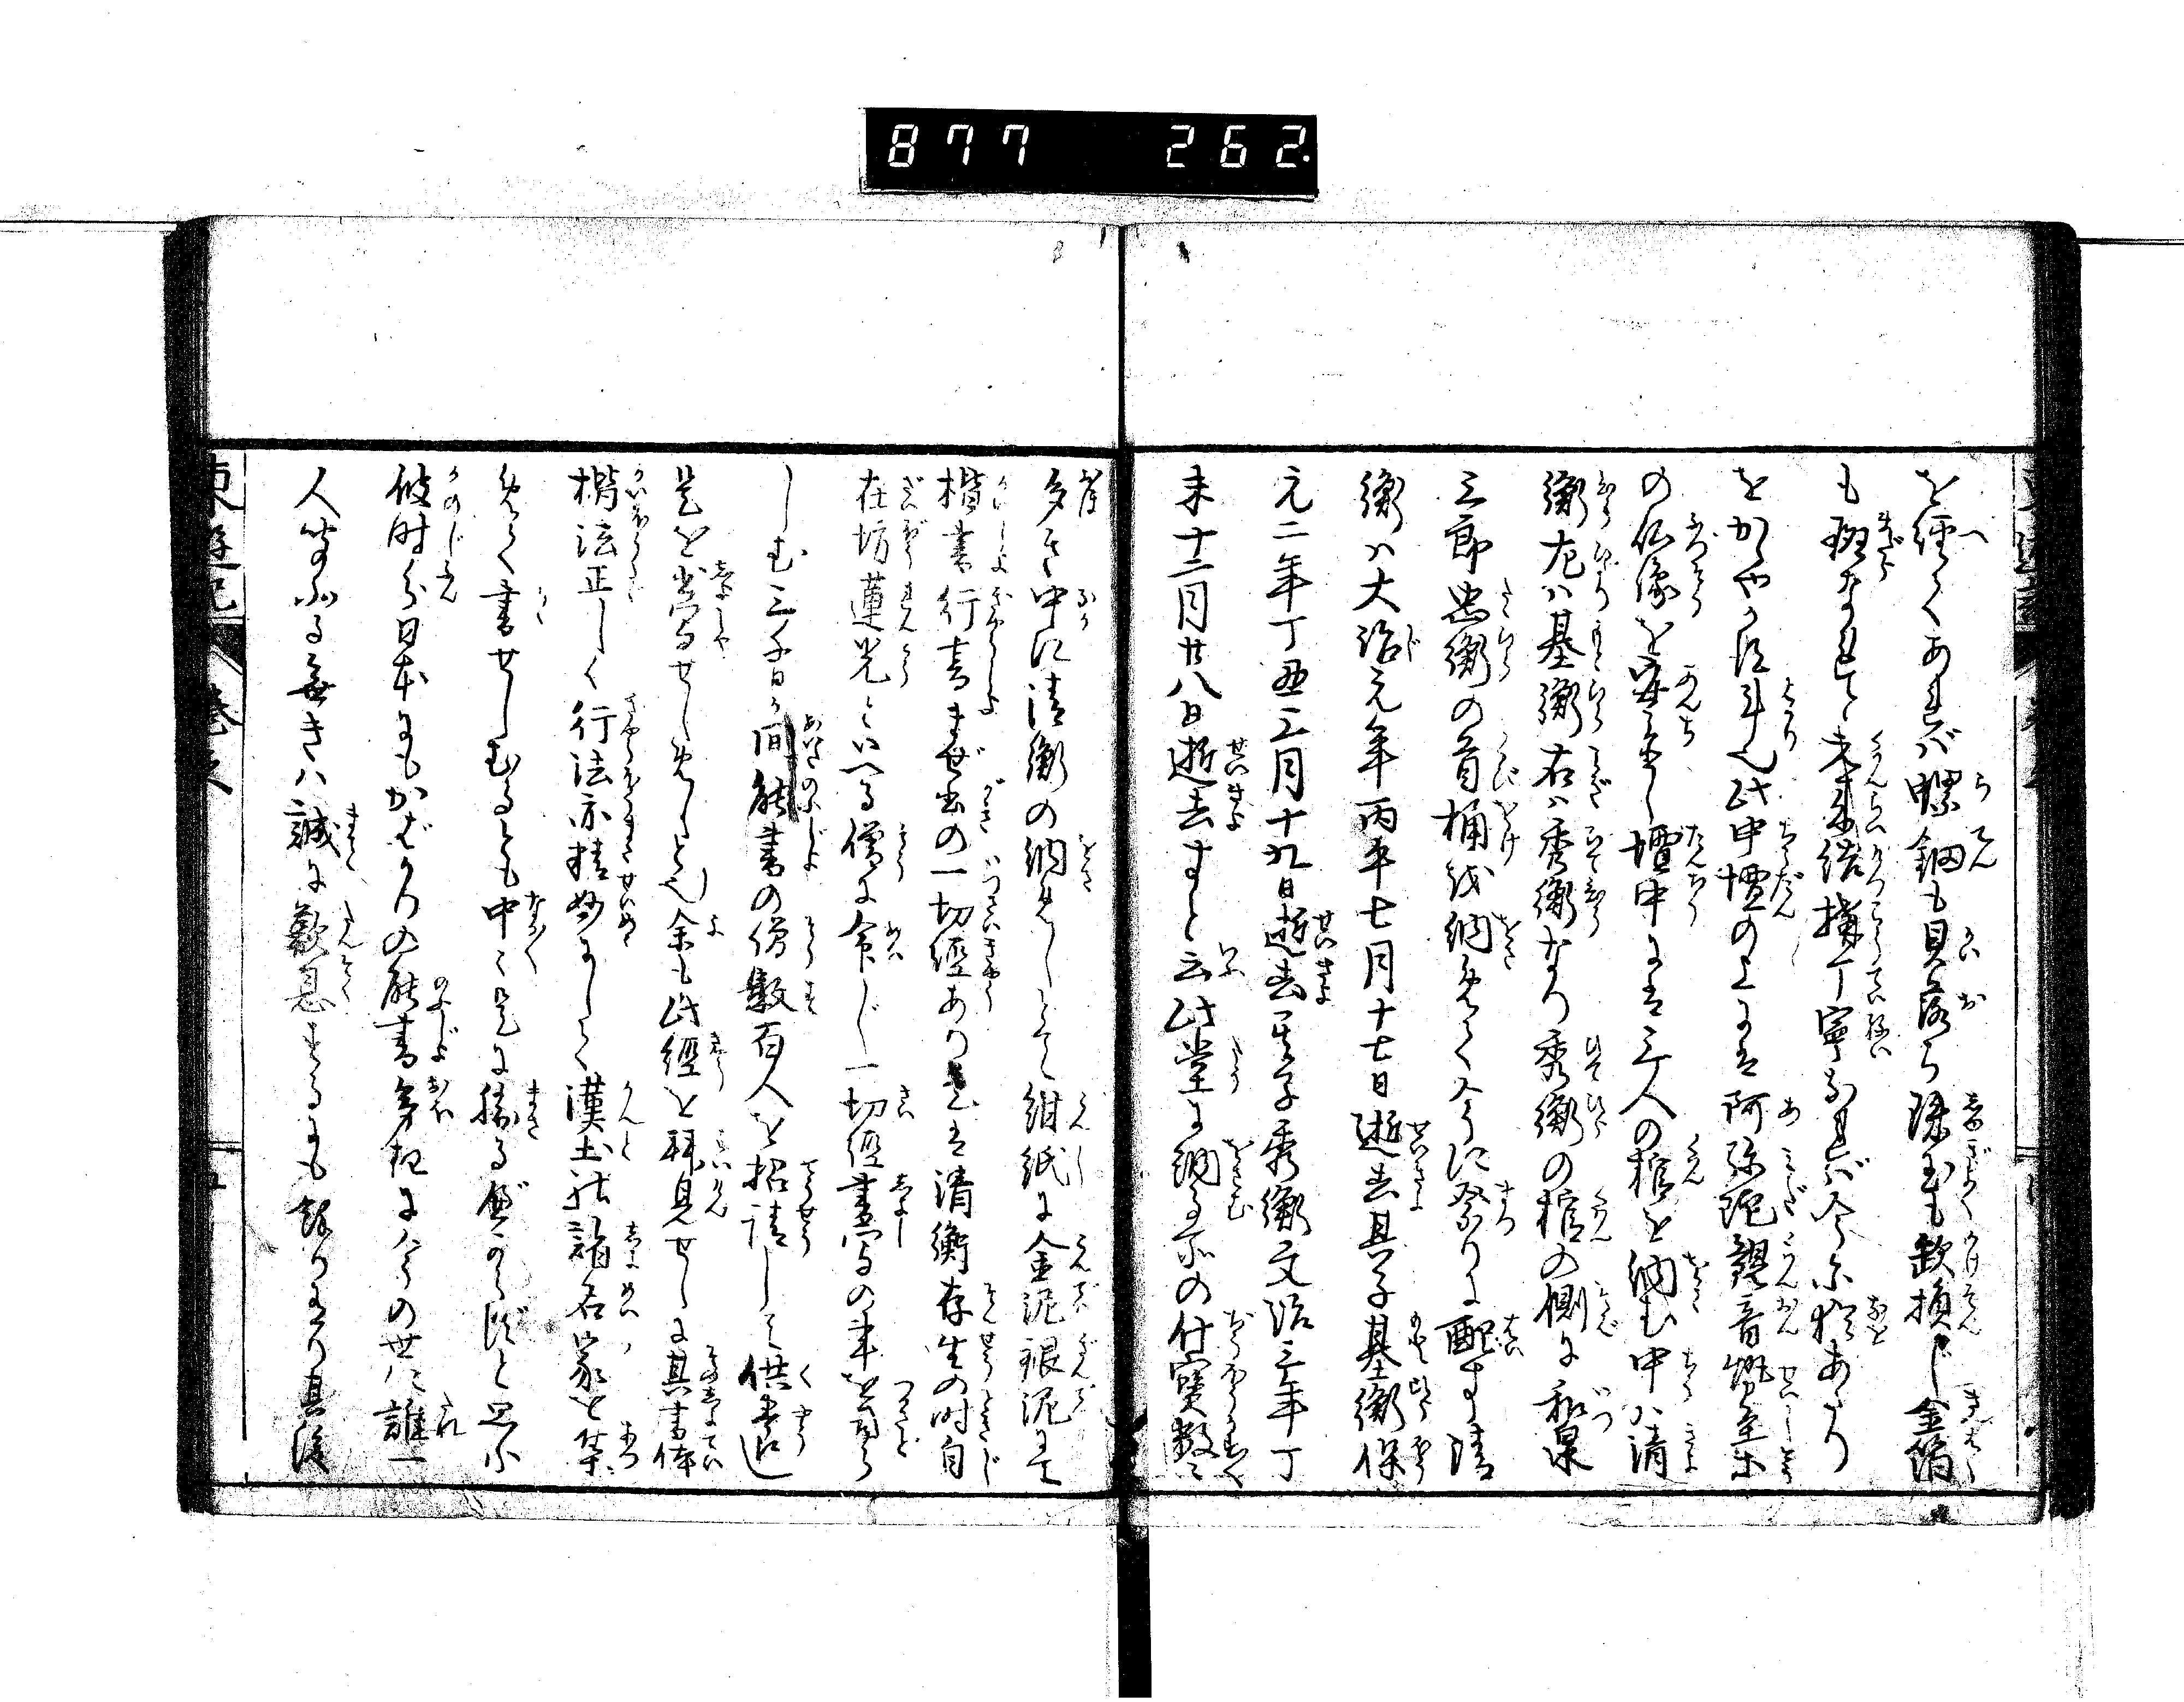 877 262
を經てあれば螺鈿も貝落ち珠玉も缺損じ金箔
も斑なれど元來結構丁寧なれば今に於あたり
をかゞやかす斗也此中壇の上には阿弥陀觀音勢至等
の仏像を安置し壇中には三人の棺を納む中ハ清
衡左ハ基衡右ハ秀衡なり秀衡の棺の側に和泉
三郎忠衡の首桶を納めて今に祭りに配す清
衡ハ大治元年丙午七月十七日逝去其子基衡保
元二年丁丑三月十九日逝去其子秀衡文治三年丁
未十二月廿八日逝去すと云此堂に納る所の什寶數々
多き中に清衡の納めしとて紺紙に金泥銀泥にて
楷書行書まぜ書の一切經あり是は清衡存生の時自
在坊蓮光といへる僧に命じ一切經書写の事を司ら
しむ三千日が間能書の僧數百人を招請して供養し
是を書写せしめしと也余も此經を拜見せしに其書体
楷法正しく行法亦精妙にして漢土の諸名家を集
めて書せしむるとも中々是に勝る べからずと思ふ
彼時分日本にもかばかりの能書多きに今の世に誰一
人筆ふる無きハ誠に歎息するにも餘りあり其後
東遊記 卷之
五